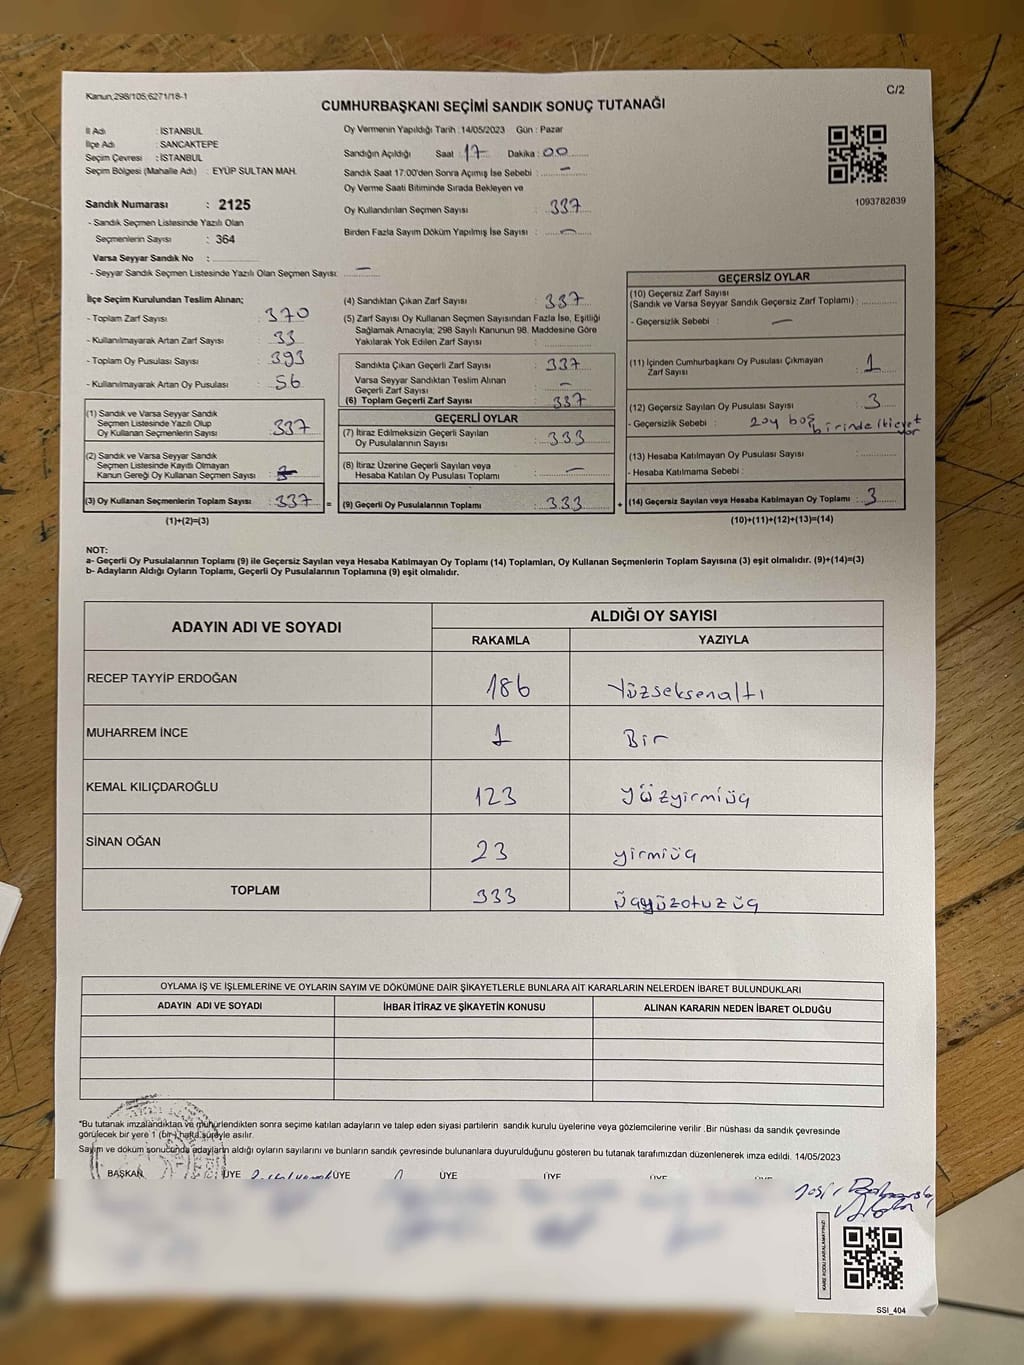 Kanun,298/105,6271/18-1
C/2
CUMHURBAŞKANI SEÇİMİ SANDIK SONUÇ TUTANAĞI
İl Adı : İSTANBUL
İlçe Adı : SANCAKTEPE
Seçim Çevresi : İSTANBUL
Seçim Bölgesi (Mahalle Adı) : EYÜP SULTAN MAH.
Sandık Numarası : 2125
- Sandık Seçmen Listesinde Yazılı Olan
Seçmenlerin Sayısı : 364
Varsa Seyyar Sandık No :
- Seyyar Sandık Seçmen Listesinde Yazılı Olan Seçmen Sayısı: —
Oy Vermenin Yapıldığı Tarih : 14/05/2023 Gün : Pazar
Sandığın Açıldığı Saat : 17 Dakika : 00
Sandık Saat 17:00'den Sonra Açımış İse Sebebi : —
Oy Verme Saati Bitiminde Sırada Bekleyen ve
Oy Kullandırılan Seçmen Sayısı : 337
Birden Fazla Sayım Döküm Yapılmış İse Sayısı : —
1093782839
İlçe Seçim Kurulundan Teslim Alınan;
- Toplam Zarf Sayısı : 370
- Kullanılmayarak Artan Zarf Sayısı : 33
- Toplam Oy Pusulası Sayısı : 393
- Kullanılmayarak Artan Oy Pusulası : 56
(1) Sandık ve Varsa Seyyar Sandık
Seçmen Listesinde Yazılı Olup
Oy Kullanan Seçmenlerin Sayısı : 337
(2) Sandık ve Varsa Seyyar Sandık
Seçmen Listesinde Kayıtlı Olmayan
Kanun Gereği Oy Kullanan Seçmen Sayısı :
(3) Oy Kullanan Seçmenlerin Toplam Sayısı : 337 =
(1)+(2)=(3)
(4) Sandıktan Çıkan Zarf Sayısı : 337
(5) Zarf Sayısı Oy Kullanan Seçmen Sayısından Fazla İse, Eşitliği
Sağlamak Amacıyla; 298 Sayılı Kanunun 98. Maddesine Göre
Yakılarak Yok Edilen Zarf Sayısı :
Sandıkta Çıkan Geçerli Zarf Sayısı : 337
Varsa Seyyar Sandıktan Teslim Alınan
Geçerli Zarf Sayısı : —
(6) Toplam Geçerli Zarf Sayısı : 337
GEÇERLİ OYLAR
(7) İtiraz Edilmeksizin Geçerli Sayılan
Oy Pusulalarının Sayısı : 333
(8) İtiraz Üzerine Geçerli Sayılan veya
Hesaba Katılan Oy Pusulası Toplamı : —
(9) Geçerli Oy Pusulalarının Toplamı : 333 +
GEÇERSİZ OYLAR
(10) Geçersiz Zarf Sayısı
(Sandık ve Varsa Seyyar Sandık Geçersiz Zarf Toplamı) :
- Geçersizlik Sebebi : —
(11) İçinden Cumhurbaşkanı Oy Pusulası Çıkmayan
Zarf Sayısı : 1
(12) Geçersiz Sayılan Oy Pusulası Sayısı : 3
- Geçersizlik Sebebi : 2 oy boş
birinde iki evet
var
(13) Hesaba Katılmayan Oy Pusulası Sayısı :
- Hesaba Katılmama Sebebi :
(14) Geçersiz Sayılan veya Hesaba Katılmayan Oy Toplamı : 3
(10)+(11)+(12)+(13)=(14)
NOT:
a- Geçerli Oy Pusulalarının Toplamı (9) ile Geçersiz Sayılan veya Hesaba Katılmayan Oy Toplamı (14) Toplamları, Oy Kullanan Seçmenlerin Toplam Sayısına (3) eşit olmalıdır. (9)+(14)=(3)
b- Adayların Aldığı Oyların Toplamı, Geçerli Oy Pusulalarının Toplamına (9) eşit olmalıdır.
ADAYIN ADI VE SOYADI
ALDIĞI OY SAYISI
RAKAMLA YAZIYLA
RECEP TAYYİP ERDOĞAN 186 Yüzseksenaltı
MUHARREM İNCE 1 Bir
KEMAL KILIÇDAROĞLU 123 yüzyirmiüç
SİNAN OĞAN 23 yirmiüç
TOPLAM 333 üçyüzotuzüç
OYLAMA İŞ VE İŞLEMLERİNE VE OYLARIN SAYIM VE DÖKÜMÜNE DAİR ŞİKAYETLERLE BUNLARA AİT KARARLARIN NELERDEN İBARET BULUNDUKLARI
ADAYIN ADI VE SOYADI İHBAR İTİRAZ VE ŞİKAYETİN KONUSU ALINAN KARARIN NEDEN İBARET OLDUĞU
*Bu tutanak imzalandıktan ve mühürlendikten sonra seçime katılan adayların ve talep eden siyasi partilerin sandık kurulu üyelerine veya gözlemcilerine verilir .Bir nüshası da sandık çevresinde
görülecek bir yere 1 (bir) hafta süreyle asılır.
Sayım ve döküm sonucunda adayların aldığı oyların sayılarını ve bunların sandık çevresinde bulunanlara duyurulduğunu gösteren bu tutanak tarafımızdan düzenlenerek imza edildi. 14/05/2023
BAŞKAN ÜYE ÜYE ÜYE ÜYE ÜYE ÜYE
KARE KODU KARALAMAYINIZ!
SSI_404